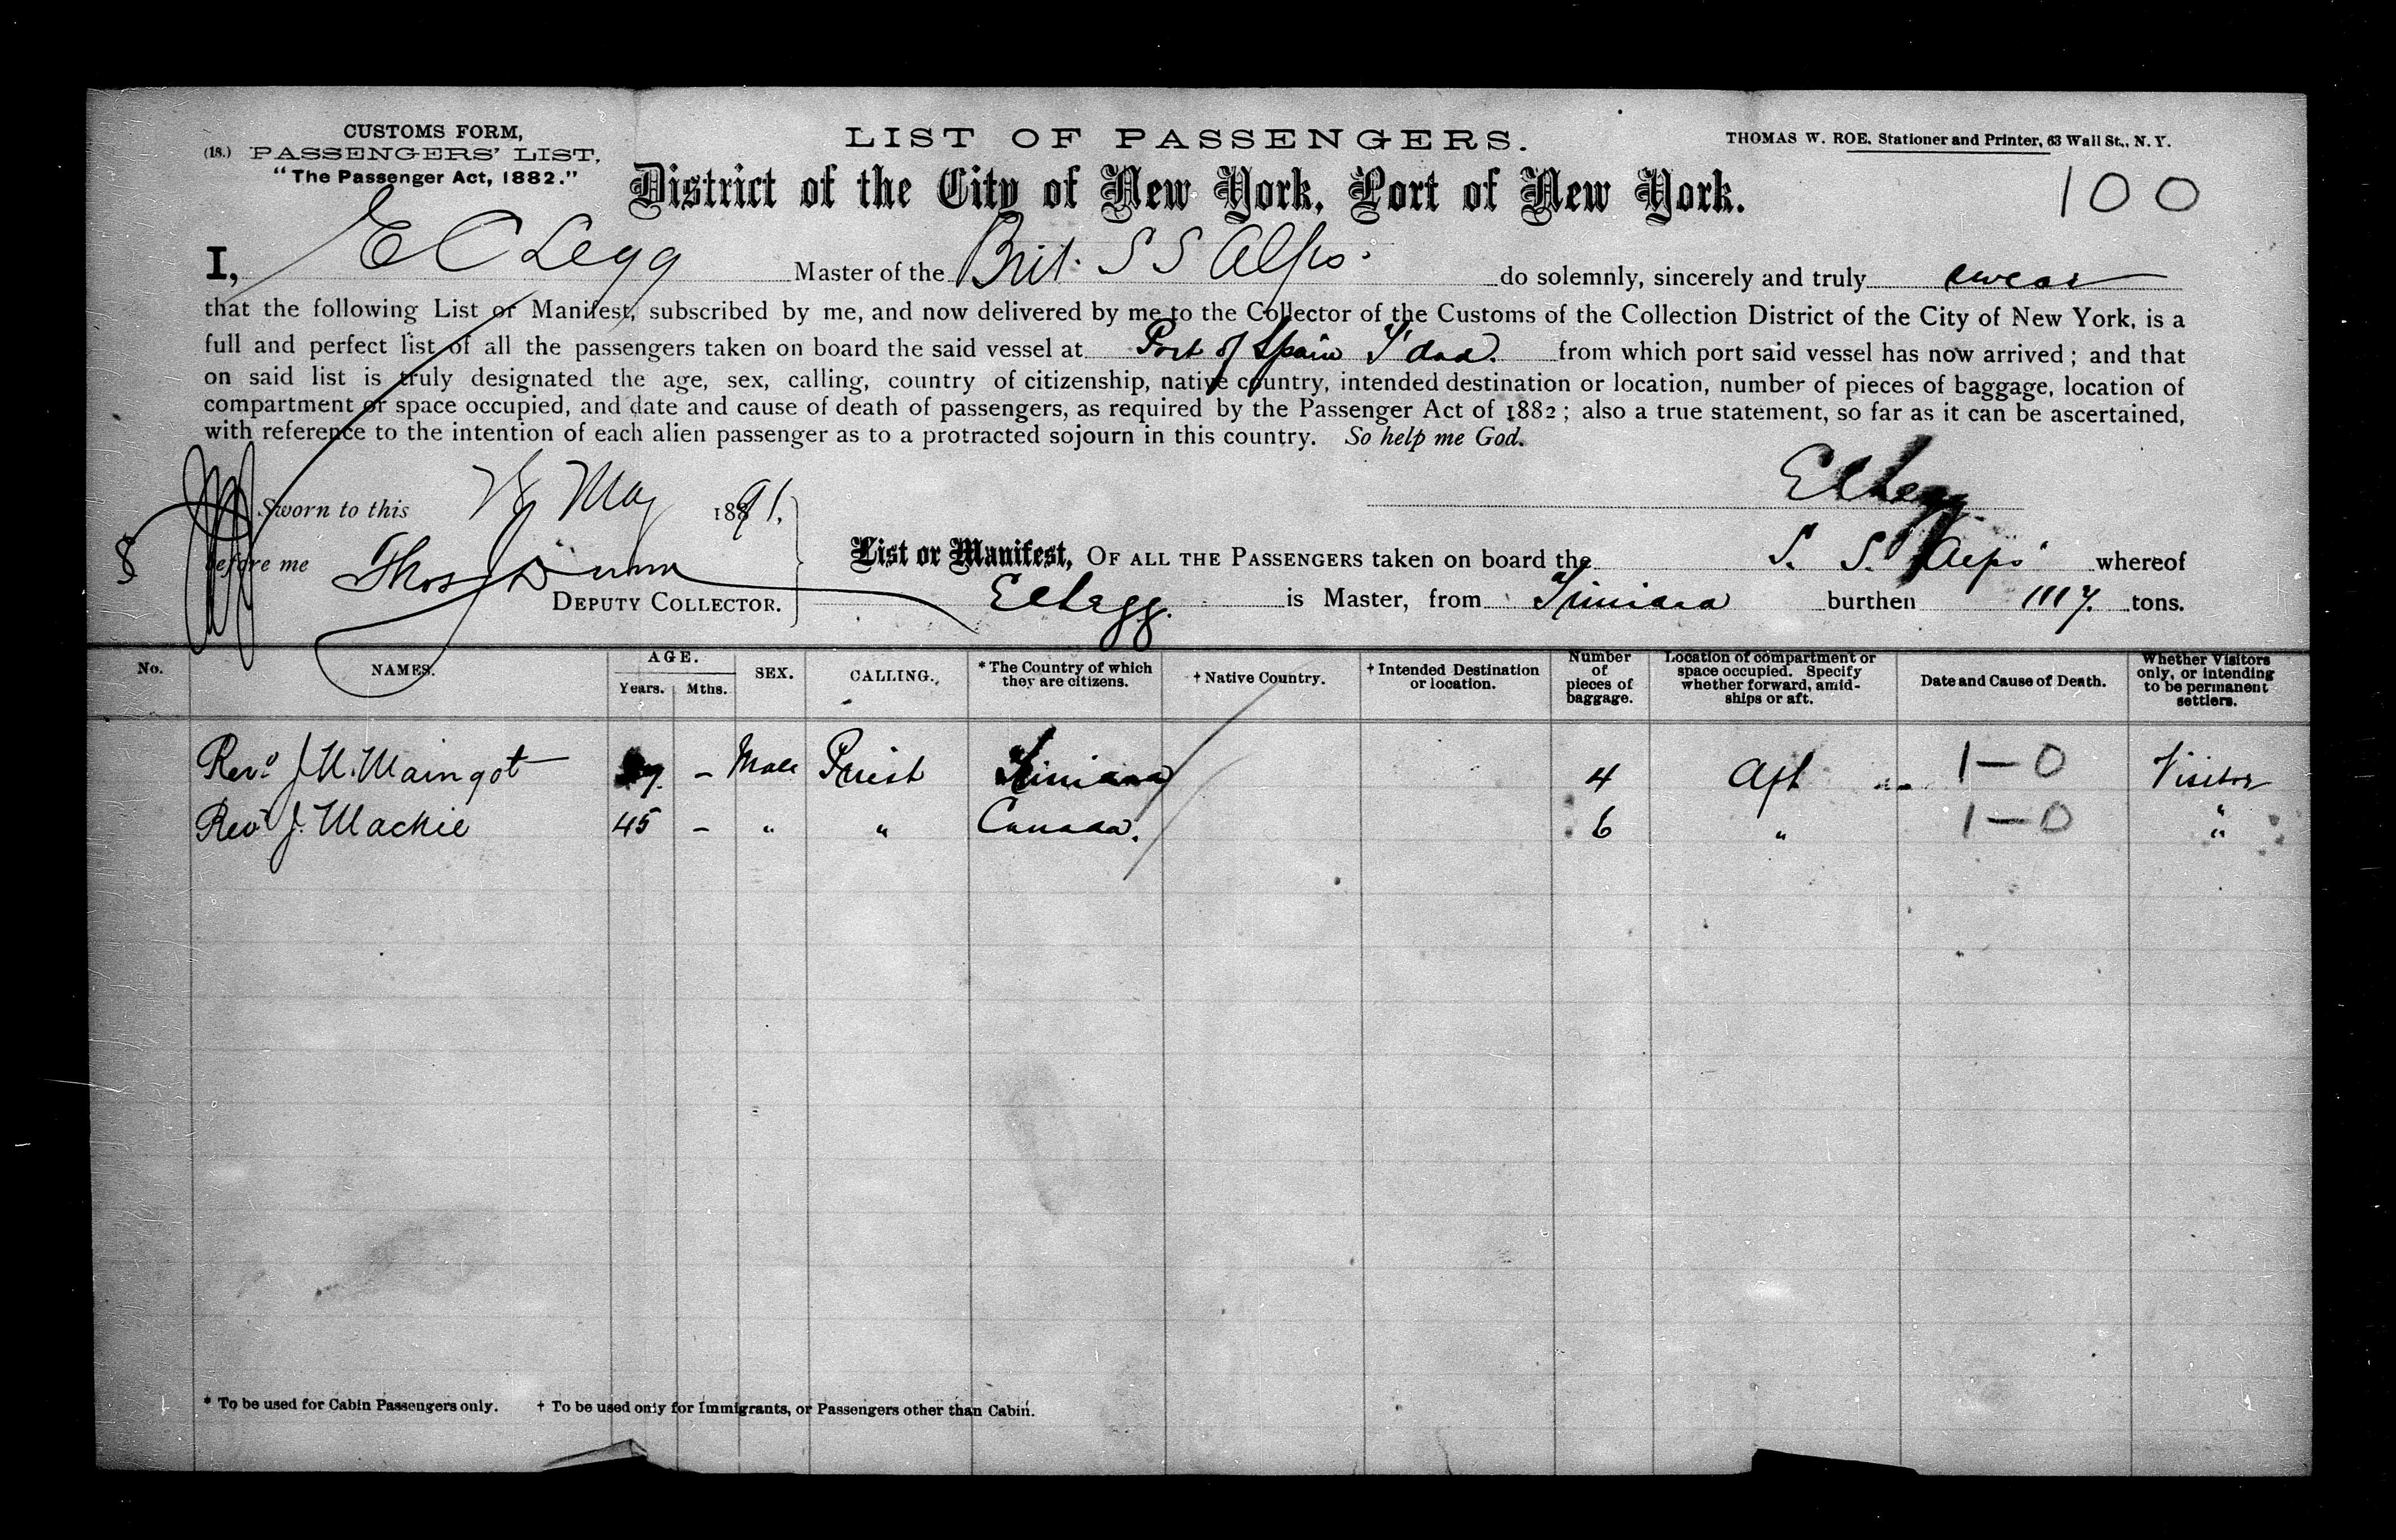 CUSTOMS FORM,
(18.) PASSENGERS' LIST,
"The Passenger Act, 1882."
LIST OF PASSENGERS.
THOMAS W. ROE, Stationer and Printer, 63 Wall St., N. Y.
District of the City of New York, Port of New York.
100
I, E C Legg Master of the Brit. S S Alps. do solemnly, sincerely and truly swear
that the following List or Manifest, subscribed by me, and now delivered by me to the Collector of the Customs of the Collection District of the City of New York, is a
full and perfect list of all the passengers taken on board the said vessel at Port of Spain T'dad. from which port said vessel has now arrived; and that
on said list is truly designated the age, sex, calling, country of citizenship, native country, intended destination or location, number of pieces of baggage, location of
compartment or space occupied, and date and cause of death of passengers, as required by the Passenger Act of 1882; also a true statement, so far as it can be ascertained,
with reference to the intention of each alien passenger as to a protracted sojourn in this country. So help me God.
E C Legg
Sworn to this May 1891.
8 before me Thos Dunn
DEPUTY COLLECTOR.
List or Manifest, OF ALL THE PASSENGERS taken on board the S. S. "Alps" whereof
E C Legg. is Master, from Trinidad burthen 1117. tons.
No. NAMES. AGE. Years. Mths. SEX. CALLING. *The Country of which they are citizens. †Native Country. †Intended Destination or location. Number of pieces of baggage. Location of compartment or space occupied. Specify whether forward, amid-ships or aft. Date and Cause of Death. Whether Visitors only, or intending to be permanent settlers.
Revd J. N. Maingot – Male Priest Trinidad 4 Aft 1—0 Visitor
Revd J. Mackie 45 – " " Canada. 6 " 1—0 "
* To be used for Cabin Passengers only. † To be used only for Immigrants, or Passengers other than Cabin.